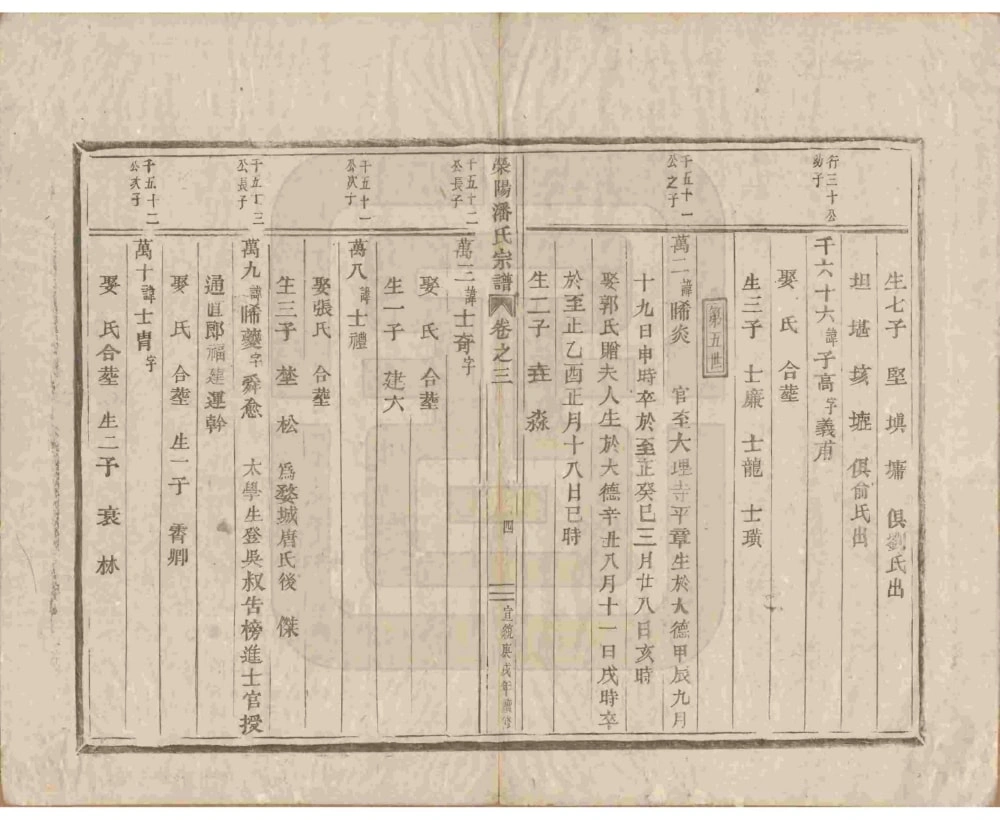 生七子 堅 塤 墉 俱劉氏出
坦 堪 垓 堐 俱俞氏出
行三十公
幼子
千六十六諱子高字義甫
娶 氏 合塟
生三子 士廉 士龍 士璜
第五世
千五十一
公之子
萬二諱晞炎 官至大理寺平章生於大德甲辰九月
十九日申時卒於至正癸巳三月廿八日亥時
娶郭氏贈夫人生於大德辛丑八月十一日戌時卒
於至正乙酉正月十八日巳時
生二子 垚 淼
滎陽潘氏宗譜 卷之三 四 宣統庚戌年續修
千五十二
公長子
萬三諱士奇字
娶 氏 合塟
生一子 建六
千五十一
公次子
萬八諱士禮
娶張氏 合塟
生三子 埜 松 爲婺城唐氏後 傑
千五十三
公長子
萬九諱晞夔字舜愈 太學生登吳叔告榜進士官授
通直郎福建運幹
娶 氏 合塟 生一子 霄卿
千五十二
公次子
萬十諱士冑字
娶 氏合塟 生二子 袞 林